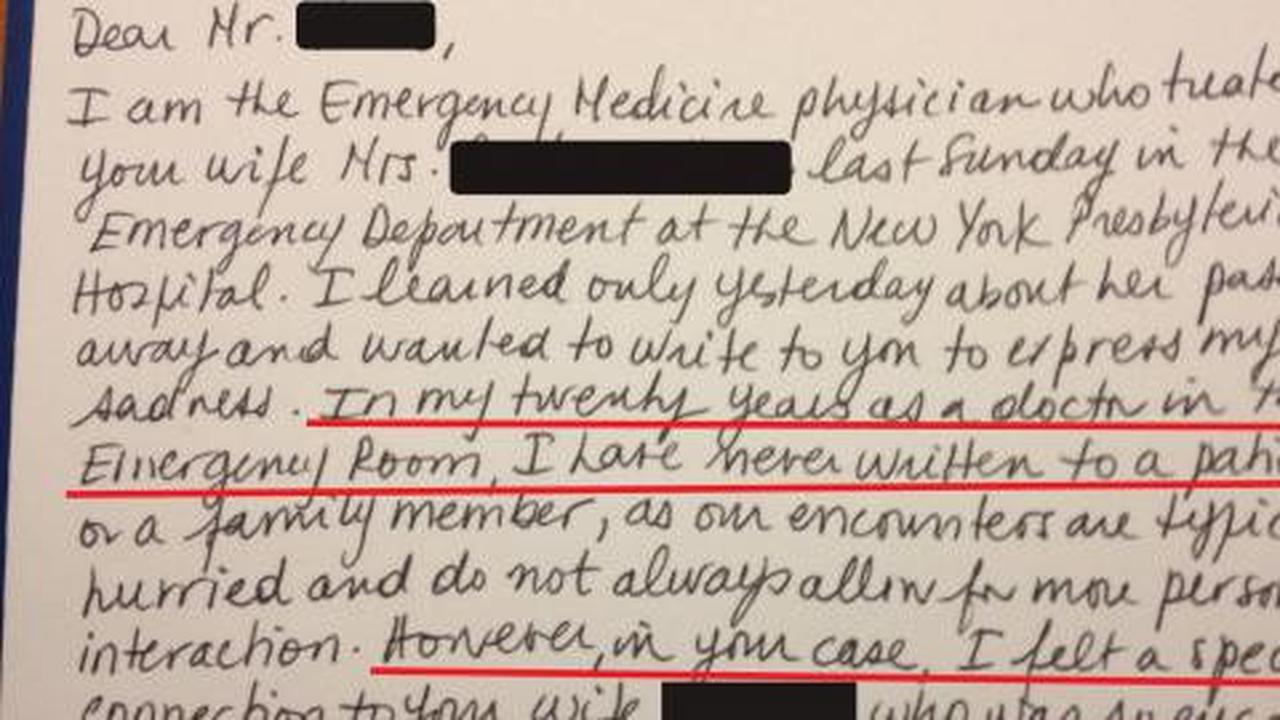 Dear Mr.,
I am the Emergency Medicine physician who treate
your wife Mrs. last Sunday in the
Emergency Department at the New York Presbyteri
Hospital. I learned only yesterday about her pas
away and wanted to write to you to express my
sadness. In my twenty years as a doctor in t
Emergency Room, I have never written to a pati
or a family member, as our encounters are typic
hurried and do not always allow for more person
interaction. However, in your case, I felt a spec
connection to your wife who was so